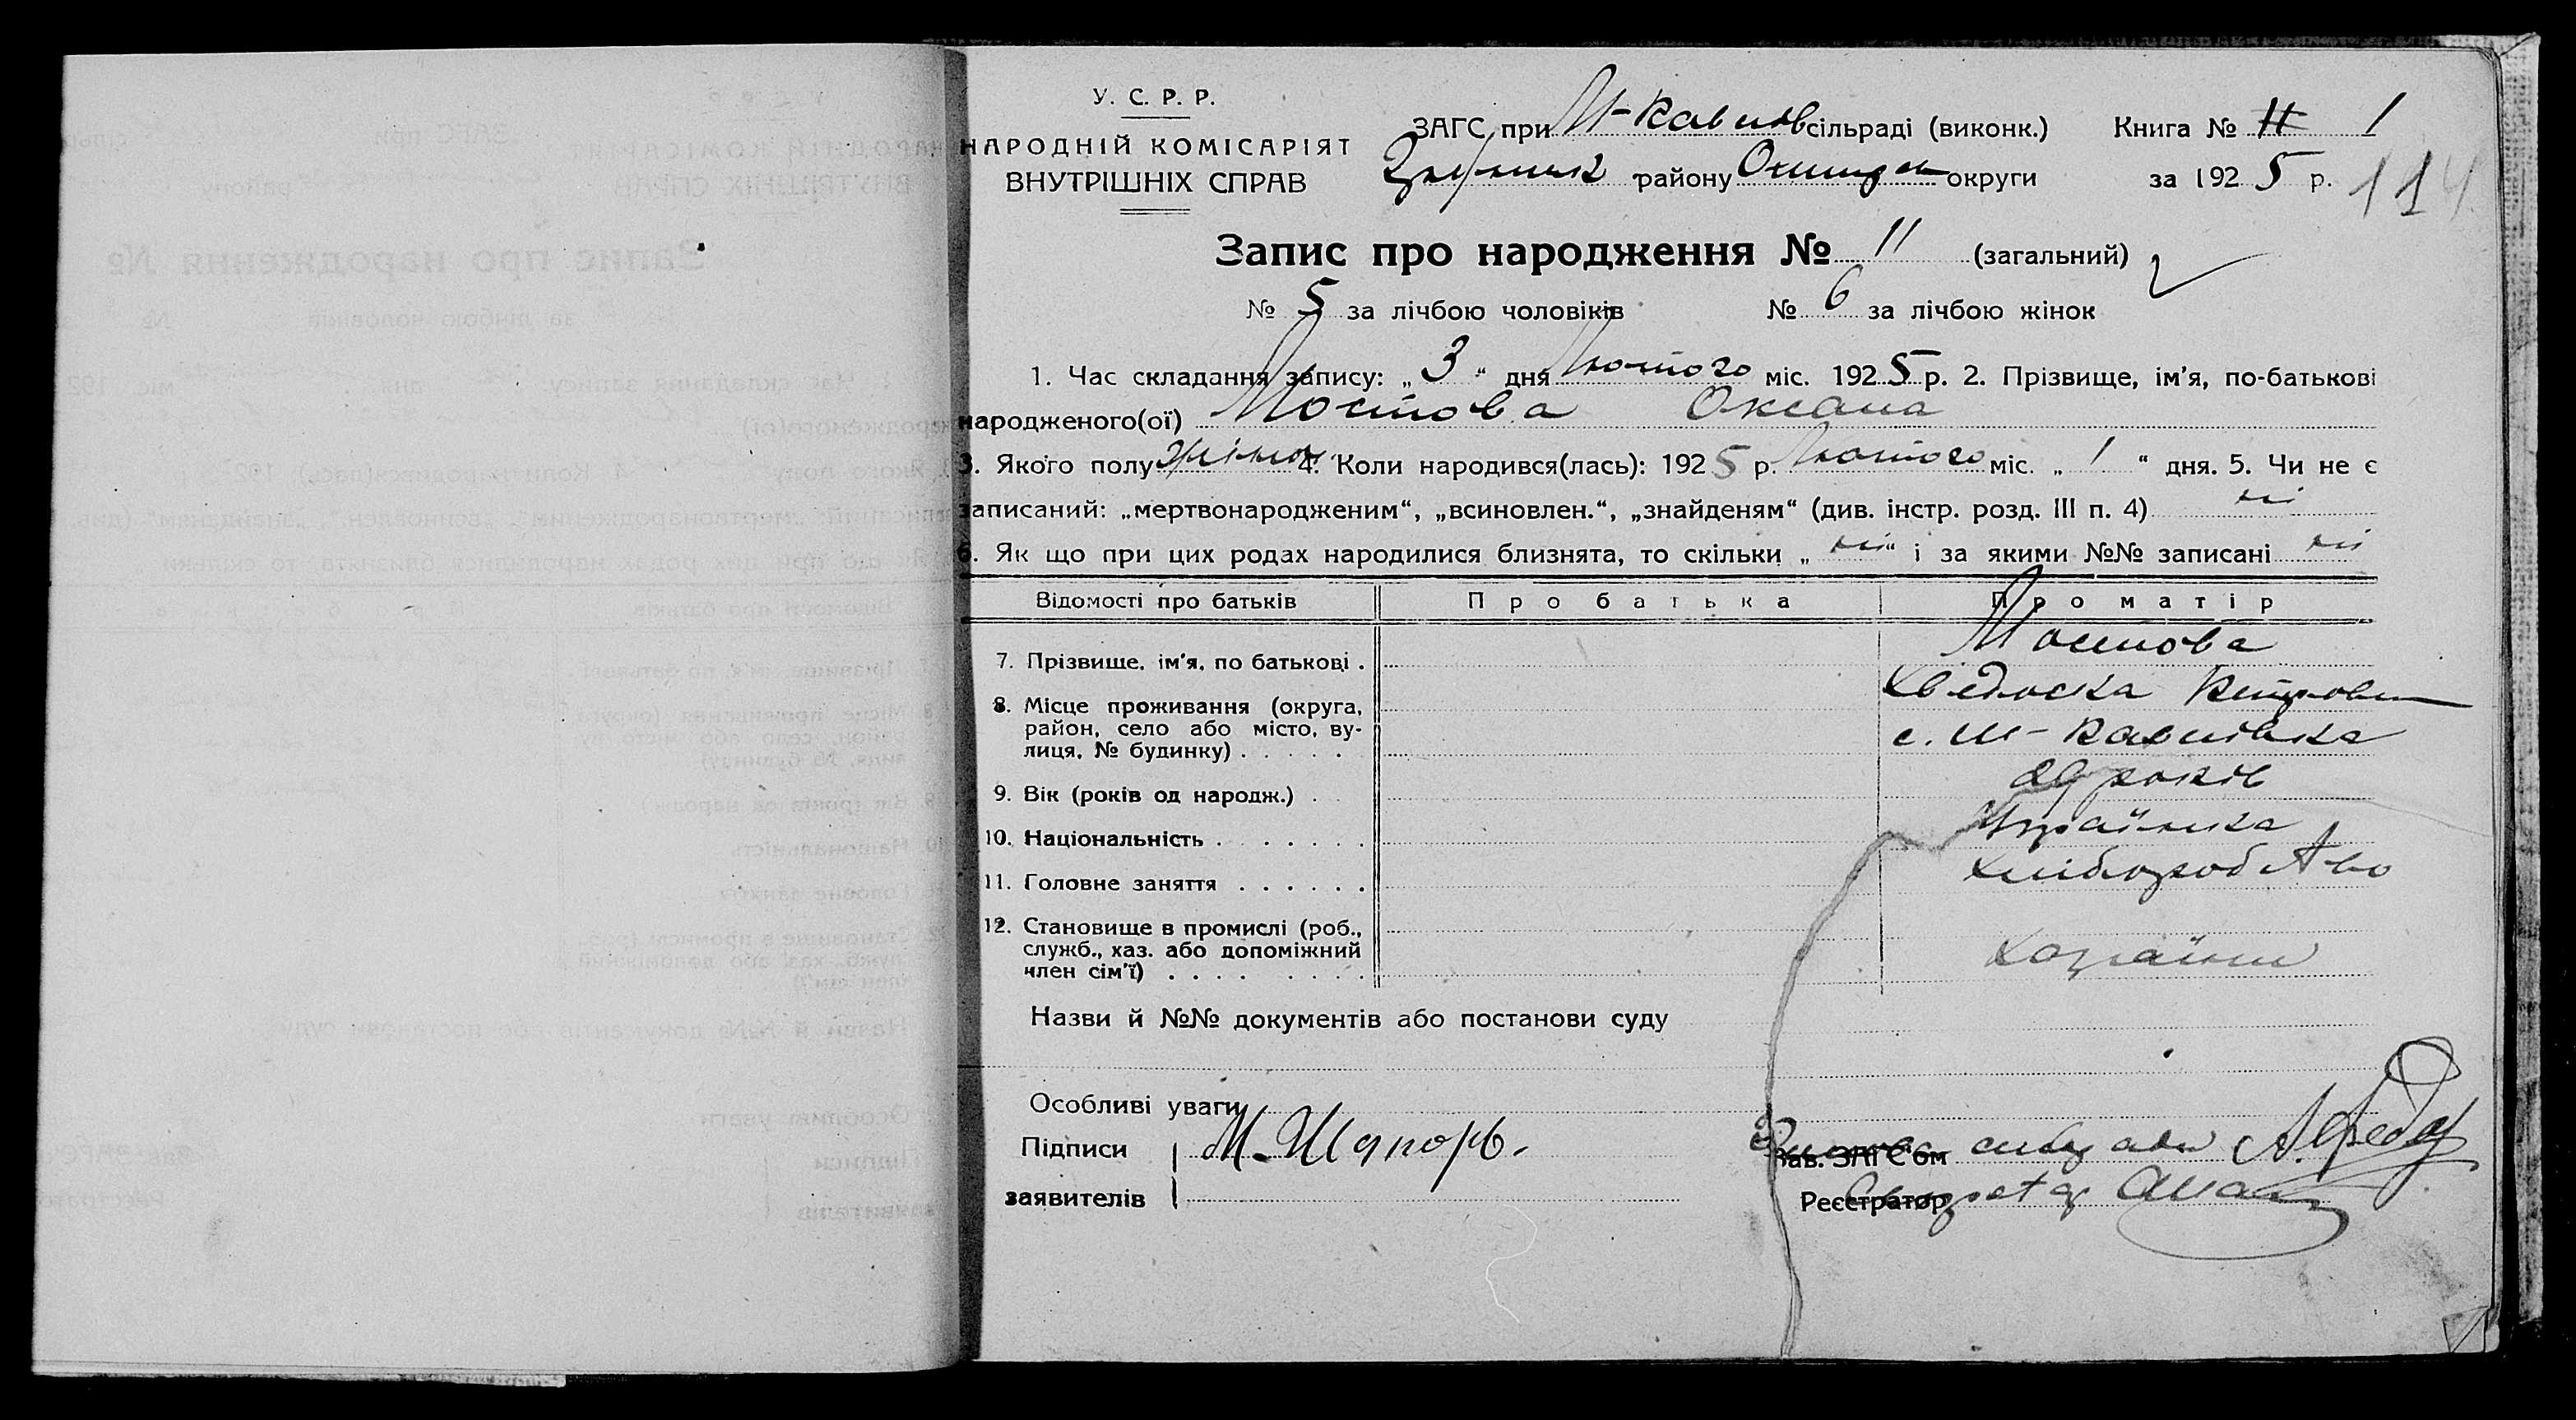 У. С. Р. Р.
НАРОДНІЙ КОМІСАРІЯТ
ВНУТРІШНІХ СПРАВ
ЗАГС при сільраді (виконк.) Книга № 11 1
району округи за 1925 р. 114
Запис про народження № 11 (загальний)
№ 5 за лічбою чоловіків № 6 за лічбою жінок
1. Час складання запису: „ 3 “ дня Лютого міс. 1925 р. 2. Прізвище, ім'я, по-батькові
народженого(ої) Мостова Оксана
3. Якого полу жіноч. 4. Коли народився(лась): 1925 р. Лютого міс. „ 1 “ дня. 5. Чи не є
записаний: „мертвонародженим“, „всиновлен.“, „знайденям“ (див. інстр. розд. III п. 4) ні
6. Як що при цих родах народилися близнята, то скільки „ ні “ і за якими №№ записані ні
Відомості про батьків Про батька Про матір
7. Прізвище, ім'я, по батькові . Мостова
Хведоска
8. Місце проживання (округа,
район, село або місто, ву-
лиця, № будинку) . . . . . с.
9. Вік (років од народж.) . 29 років
10. Національність . . . . . . Українка
11. Головне заняття . . . . . . хлібороб
12. Становище в промислі (роб.,
служб., хаз. або допоміжний
член сім'ї) . . . . . . . .
Назви й №№ документів або постанови суду
Особливі уваги
Підписи М. Шапорь.
заявителів
Зав. ЗАГС'ом
Реєстратор Секретар